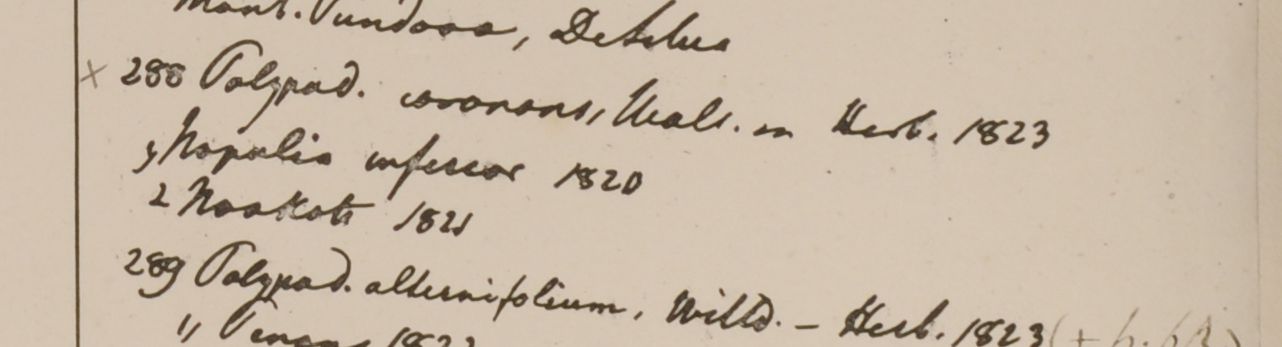 Mont. Pundooa, DeSilva
× 288 Polypod. coronans, Wall. in Herb. 1823
Napalia inferior 1820
2 Noakote 1821
289 Polypod. alternifolium, Willd. – Herb. 1823 (+ p. 63)
" Penang 1822